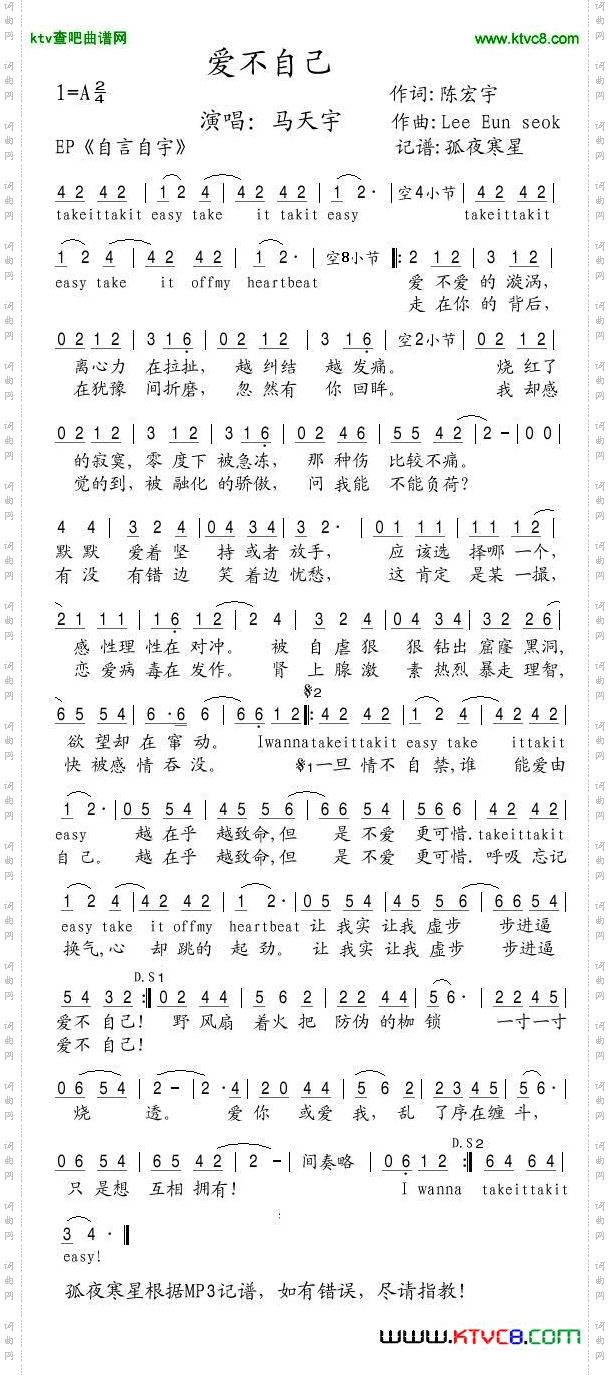 ktv查吧曲谱网
www.ktvc8.com
爱不自己
1=A2/4
作词:陈宏宇
演唱：马天宇
作曲:Lee Eun seok
EP《自言自宇》
记谱:孤夜寒星
4 2 4 2 | 1 2 4 | 4 2 4 2 | 1 2· | 空4小节 | 4 2 4 2 |
takeittakit easy take it takit easy takeittakit
1 2 4 | 4 2 4 2 | 1 2· | 空8小节 |: 2 1 2 | 3 1 2 |
easy take it offmy heartbeat 爱 不爱 的 漩涡,
走 在你 的 背后,
0 2 1 2 | 3 1 6 | 0 2 1 2 | 3 1 6 | 空2小节 | 0 2 1 2 |
离心力 在拉扯， 越 纠结 越 发痛。 烧 红了
在犹豫 间折磨， 忽 然有 你 回眸。 我 却感
0 2 1 2 | 3 1 2 | 0 2 1 2 | 3 1 6 | 0 2 4 6 | 5 5 4 2 | 2 – | 0 0 |
的寂寞, 零 度下 被急冻， 那 种伤 比较不痛。
觉的到, 被 融化 的骄傲， 问 我能 不能负荷?
4 4 | 3 2 4 | 0 4 3 4 | 3 2· | 0 1 1 1 | 1 1 1 2 |
默 默 爱着 坚 持或者 放手， 应 该选 择哪 一个,
有 没 有错 边 笑着边 忧愁， 这 肯定 是某 一撮,
2 1 1 1 | 1 6 1 2 | 2 4 | 3 2 4 | 0 4 3 4 | 3 2 2 6 |
感 性理 性在 对冲。 被 自虐 狠 狠 钻出 窟窿 黑洞,
恋 爱病 毒在 发作。 肾 上腺 激 素 热烈 暴走 理智,
𝄋2
6 5 5 4 | 6·6 6 | 6 6 1 2 |: 4 2 4 2 | 1 2 4 | 4 2 4 2 |
欲 望却 在 窜 动。 Iwannatakeittakit easy take ittakit
快 被感 情 吞 没。 𝄋1一旦 情不 自 禁,谁 能爱由
1 2· | 0 5 5 4 | 4 5 5 6 | 6 6 5 4 | 5 6 6 | 4 2 4 2 |
easy 越 在乎 越致命,但 是 不爱 更可惜.takeittakit
自 己。 越 在乎 越致命,但 是 不爱 更可惜.呼吸 忘记
1 2 4 | 4 2 4 2 | 1 2· | 0 5 5 4 | 4 5 5 6 | 6 6 5 4 |
easy take it offmy heartbeat 让 我实 让我 虚步 步进逼
换气,心 却 跳的 起 劲。 让 我实 让我 虚步 步进逼
D.S1
5 4 3 2 :| 0 2 4 4 | 5 6 2 | 2 2 4 4 | 5 6· | 2 2 4 5 |
爱不 自己! 野 风扇 着火 把 防伪 的枷 锁 一寸一寸
爱不 自己!
0 6 5 4 | 2 – | 2·4 | 0 2 4 4 | 5 6 2 | 2 3 4 5 | 5 6· |
烧 透。 爱 你 或爱 我, 乱 了序在缠 斗,
D.S2
0 6 5 4 | 6 5 4 2 | 2 – | 间奏略 | 0 6 1 2 :| 6 4 6 4 |
只 是想 互相 拥有! I wanna takeittakit
3 4 · ‖
easy!
孤夜寒星根据MP3记谱，如有错误，尽请指教!
www.KTVC8.com